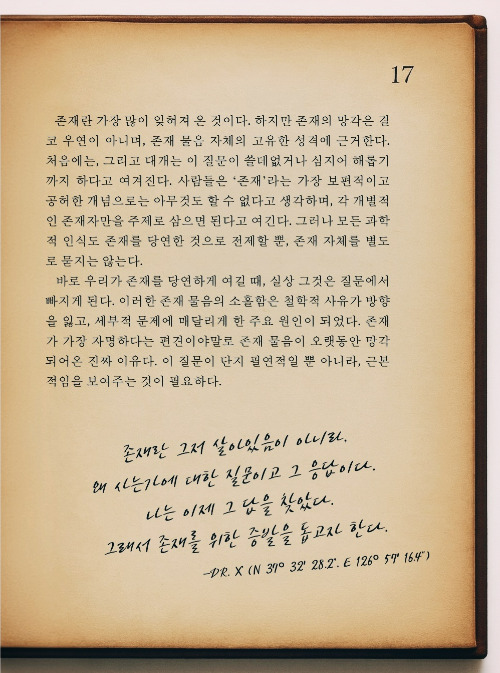 17
존재란 가장 많이 잊혀져 온 것이다. 하지만 존재의 망각은 결
코 우연이 아니며, 존재 물음 자체의 고유한 성격에 근거한다.
처음에는, 그리고 대개는 이 질문이 쓸데없거나 심지어 해롭기
까지 하다고 여겨진다. 사람들은 '존재'라는 가장 보편적이고
공허한 개념으로는 아무것도 할 수 없다고 생각하며, 각 개별적
인 존재자만을 주제로 삼으면 된다고 여긴다. 그러나 모든 과학
적 인식도 존재를 당연한 것으로 전제할 뿐, 존재 자체를 별도
로 묻지는 않는다.
바로 우리가 존재를 당연하게 여길 때, 실상 그것은 질문에서
빠지게 된다. 이러한 존재 물음의 소홀함은 철학적 사유가 방향
을 잃고, 세부적 문제에 매달리게 한 주요 원인이 되었다. 존재
가 가장 자명하다는 편견이야말로 존재 물음이 오랫동안 망각
되어온 진짜 이유다. 이 질문이 단지 필연적일 뿐 아니라, 근본
적임을 보이주는 것이 필요하다.
존재란 그저 살아있음이 아니라.
왜 사는가에 대한 질문이고 그 응답이다.
나는 이제 그 답을 찾았다.
그래서 존재를 위한 증발을 돕고자 한다.
-DR. X (N 37° 32' 28.2". E 126° 57' 16.4")